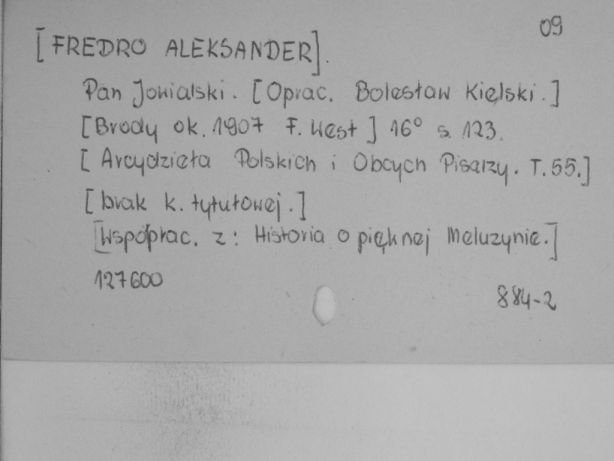 09
[FREDRO ALEKSANDER].
Pan Jowialski. [Oprac. Bolesław Kielski.]
[Brody ok. 1907 F. West] 16° s. 123.
[Arcydzieła Polskich i Obcych Pisarzy. T. 55.]
[brak k. tytułowej.]
[Współprac. z: Historia o pięknej Meluzynie.]
127600
884-2